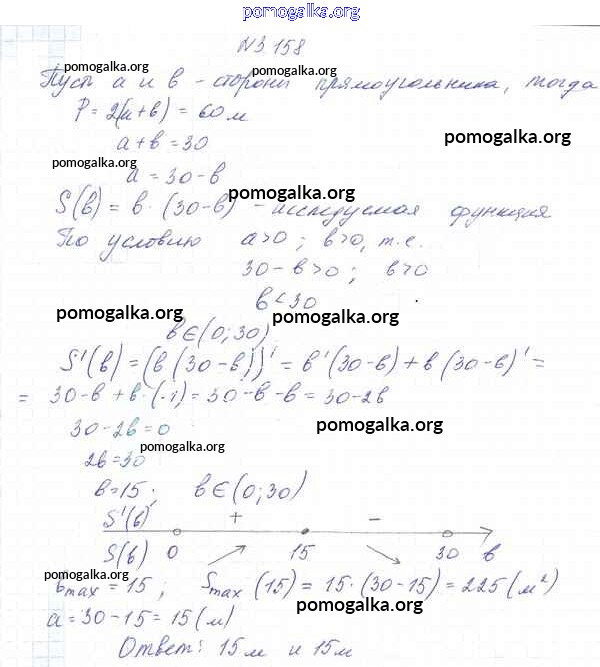 pomogalka.org
№3 158
pomogalka.org pomogalka.org
Пусть a и b - стороны прямоугольника, тогда
P = 2(a+b) = 60 м
pomogalka.org
a + b = 30
pomogalka.org
a = 30 - b
pomogalka.org
S(b) = b · (30-b) - исследуемая функция
По условию a>0; b>0, т.е.
30 - b > 0; b>0
b < 30
pomogalka.org pomogalka.org
b ∈ (0; 30)
S'(b) = (b (30-b))' = b' (30-b) + b (30-b)' =
= 30-b + b · (-1) = 30 - b - b = 30-2b
30 - 2b = 0 pomogalka.org
pomogalka.org
2b = 30
b = 15; b ∈ (0; 30)
S'(b) + -
S(b) 0 15 30 b
pomogalka.org
bmax = 15; Smax (15) = 15 · (30-15) = 225 (м²)
pomogalka.org
a = 30-15 = 15 (м)
Ответ: 15 м и 15 м
pomogalka.org